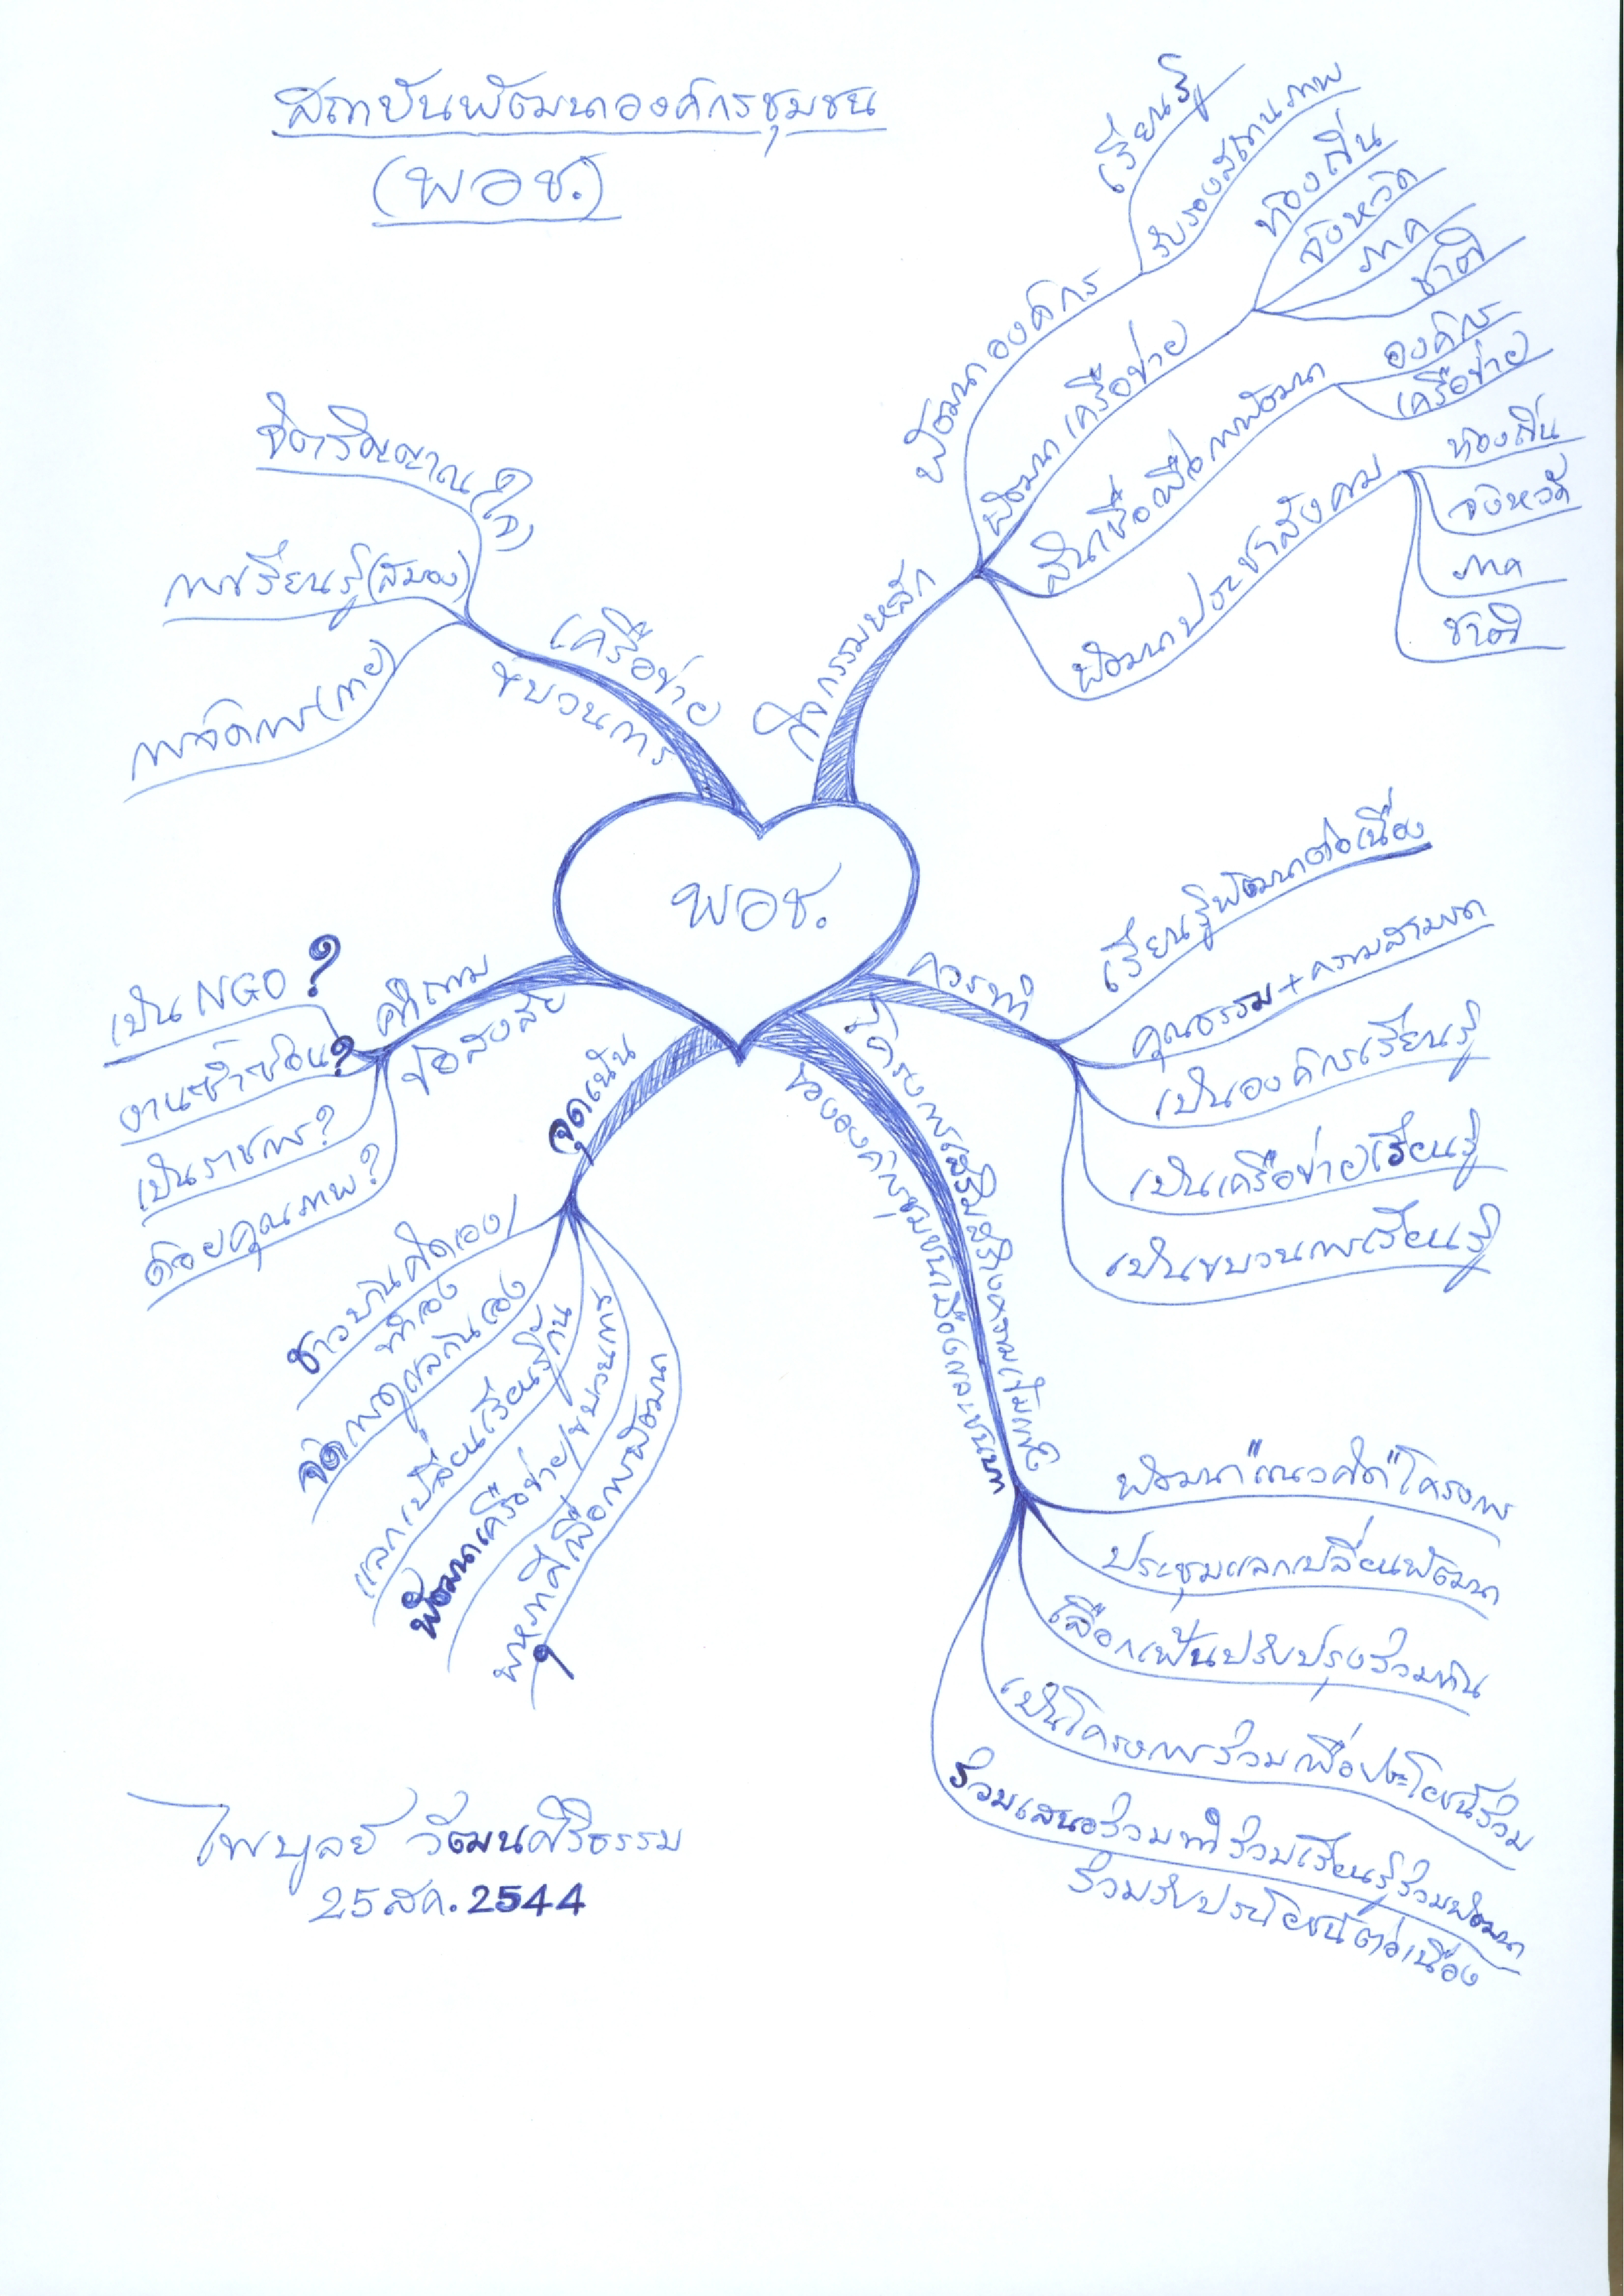 สถาบันพัฒนาองค์กรชุมชน
(พอช.)
พอช.
กิจกรรมหลัก
พัฒนาองค์กร
เรียนรู้
รับรองสถานภาพ
พัฒนาเครือข่าย
ท้องถิ่น
จังหวัด
ภาค
ชาติ
สินเชื่อเพื่อการพัฒนา
องค์กร
เครือข่าย
พัฒนาประชาสังคม
ท้องถิ่น
จังหวัด
ภาค
ชาติ
ควรทำ
เรียนรู้พัฒนาต่อเนื่อง
คุณธรรม + ความสามารถ
เป็นองค์กรเรียนรู้
เป็นเครือข่ายเรียนรู้
เป็นขบวนการเรียนรู้
โครงการเสริมสร้างความเข้มแข็ง
ขององค์กรชุมชนเมืองและชนบท
พัฒนา"แนวคิด"โครงการ
ประชุมแลกเปลี่ยนพัฒนา
เลือกเฟ้นปรับปรุงร่วมกัน
เป็นโครงการร่วมเพื่อประโยชน์ร่วม
ร่วมเสนอร่วมทำร่วมเรียนรู้ร่วมพัฒนา
ร่วมรับประโยชน์ต่อเนื่อง
จุดเน้น
ชาวบ้านคิดเอง/
ทำเอง
จัดการดูแลกันเอง
แลกเปลี่ยนเรียนรู้กัน
พัฒนาเครือข่าย/ขบวนการ
พหุภาคีเพื่อการพัฒนา
คำถาม
ข้อสงสัย
เป็น NGO ?
งานซ้ำซ้อน?
เป็นราชการ?
ด้อยคุณภาพ?
เครือข่าย
ขบวนการ
จิตวิญญาณ(ใจ)
การเรียนรู้(สมอง)
การจัดการ(กาย)
ไพบูลย์ วัฒนศิริธรรม
25 สค. 2544